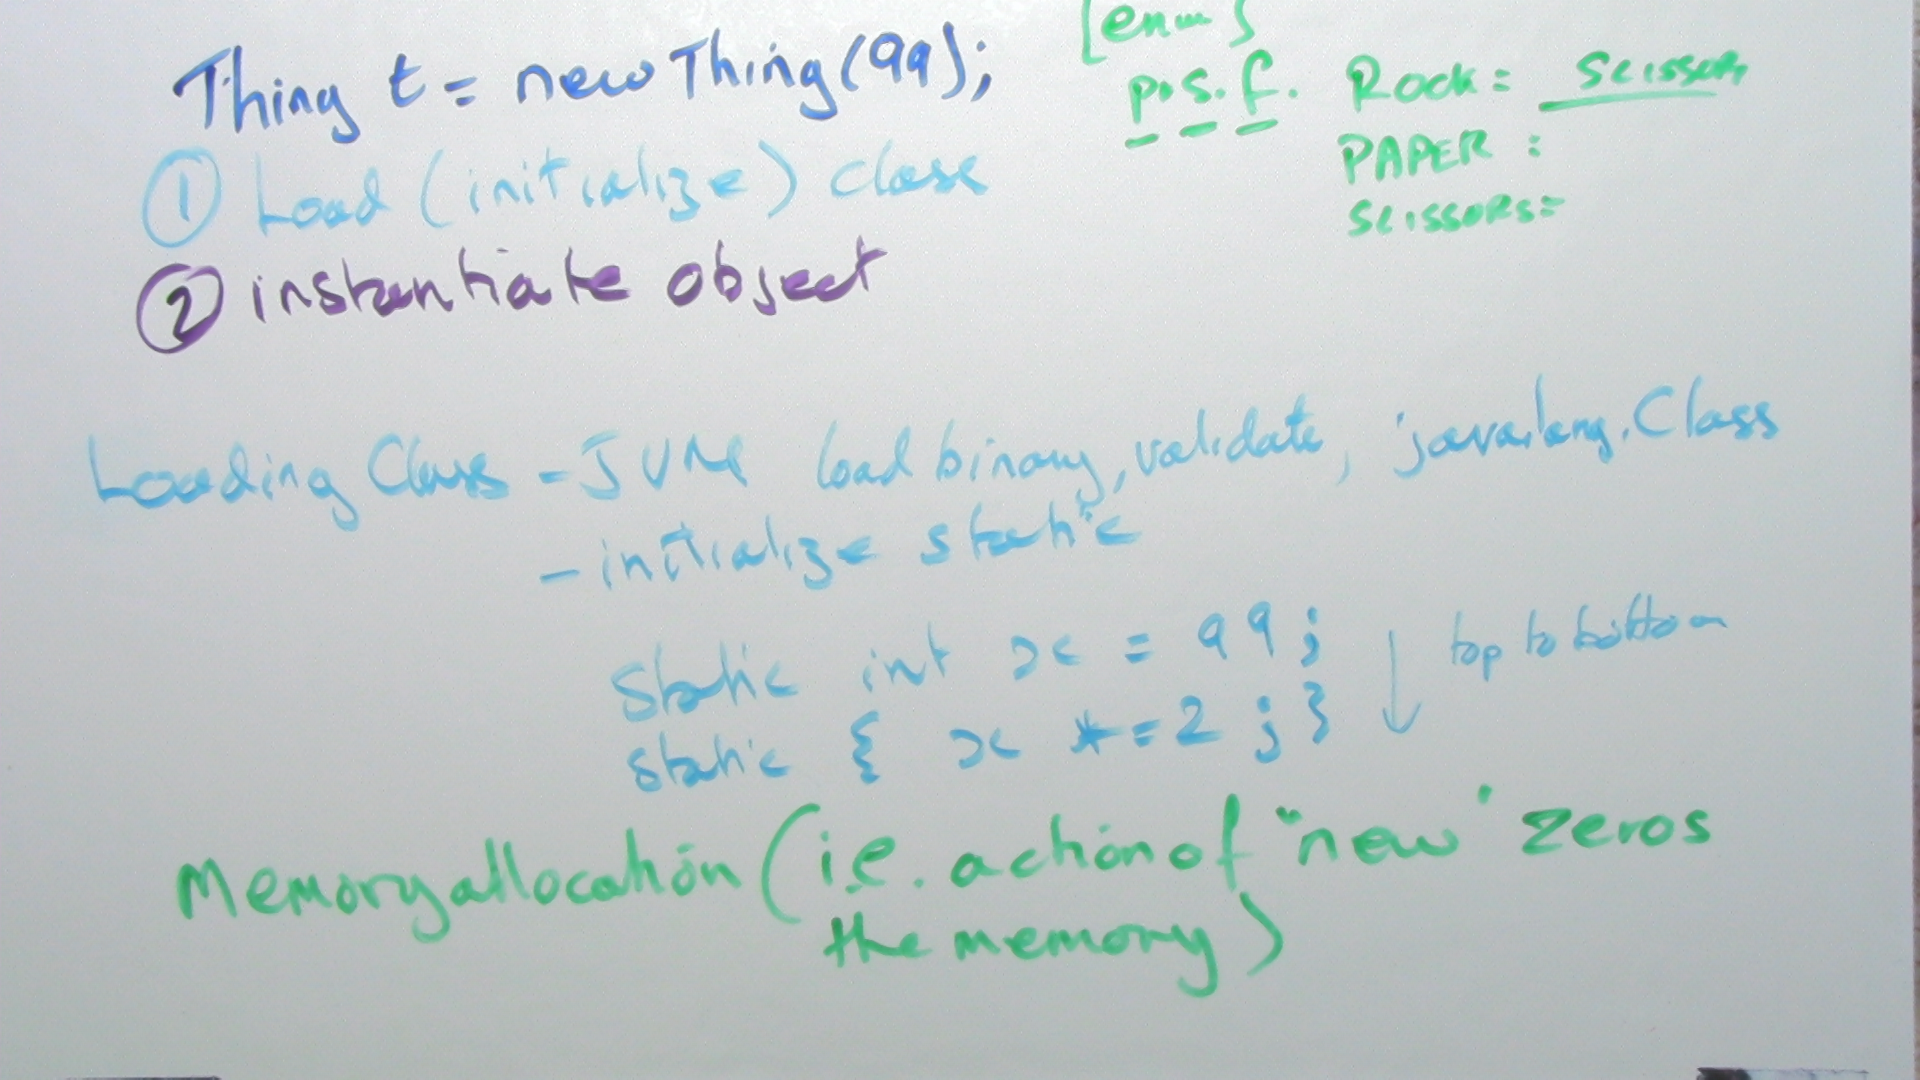 Thing t = new Thing(99);
① Load (initialize) class
② instantiate object
[enum]
p.s.f. Rock = scissors
PAPER =
SCISSORS=
Loading Class - JVM load binary, validate, java.lang.Class
- initialize static
static int x = 99;
static { x *= 2 ; }
↓ top to bottom
Memory allocation (i.e. action of "new" zeros
the memory)